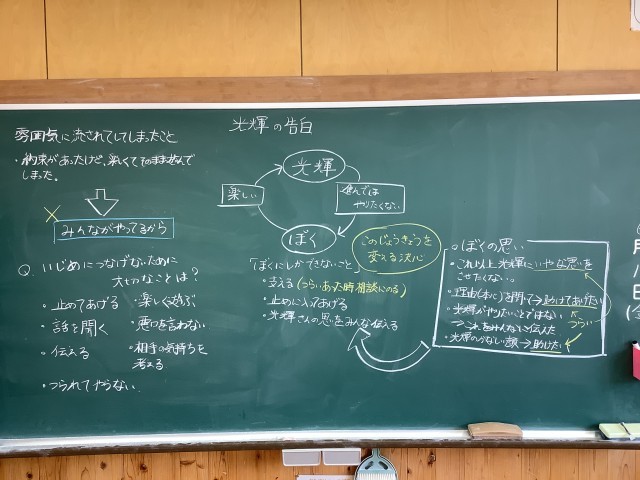 雰囲気に流されてしてしまったこと
・約束があったけど、楽しくてそのまま遊んで
しまった。
みんながやってるから
Q. いじめにつなげないために
大切なことは?
・止めてあげる
・楽しく遊ぶ
・話を聞く
・悪口を言わない
・伝える
・相手の気持ちを
考える
・つられてやらない
光輝の告白
光輝
楽しい
進んでは
やりたくない
ぼく
このじょうきょうを
変える決心
「ぼくにしかできないこと」
・支える(つらい、あった時相談にのる)
・止めに入ってあげる
・光輝さんの思いをみんなに伝える
ぼくの思い
・これ以上光輝にいやな思いを
させたくない。
・理由(本心)を聞いて→助けてあげたい
・光輝がやりたいことではない
つらい
→これをみんなに伝えた
・光輝の 顔→助けたい